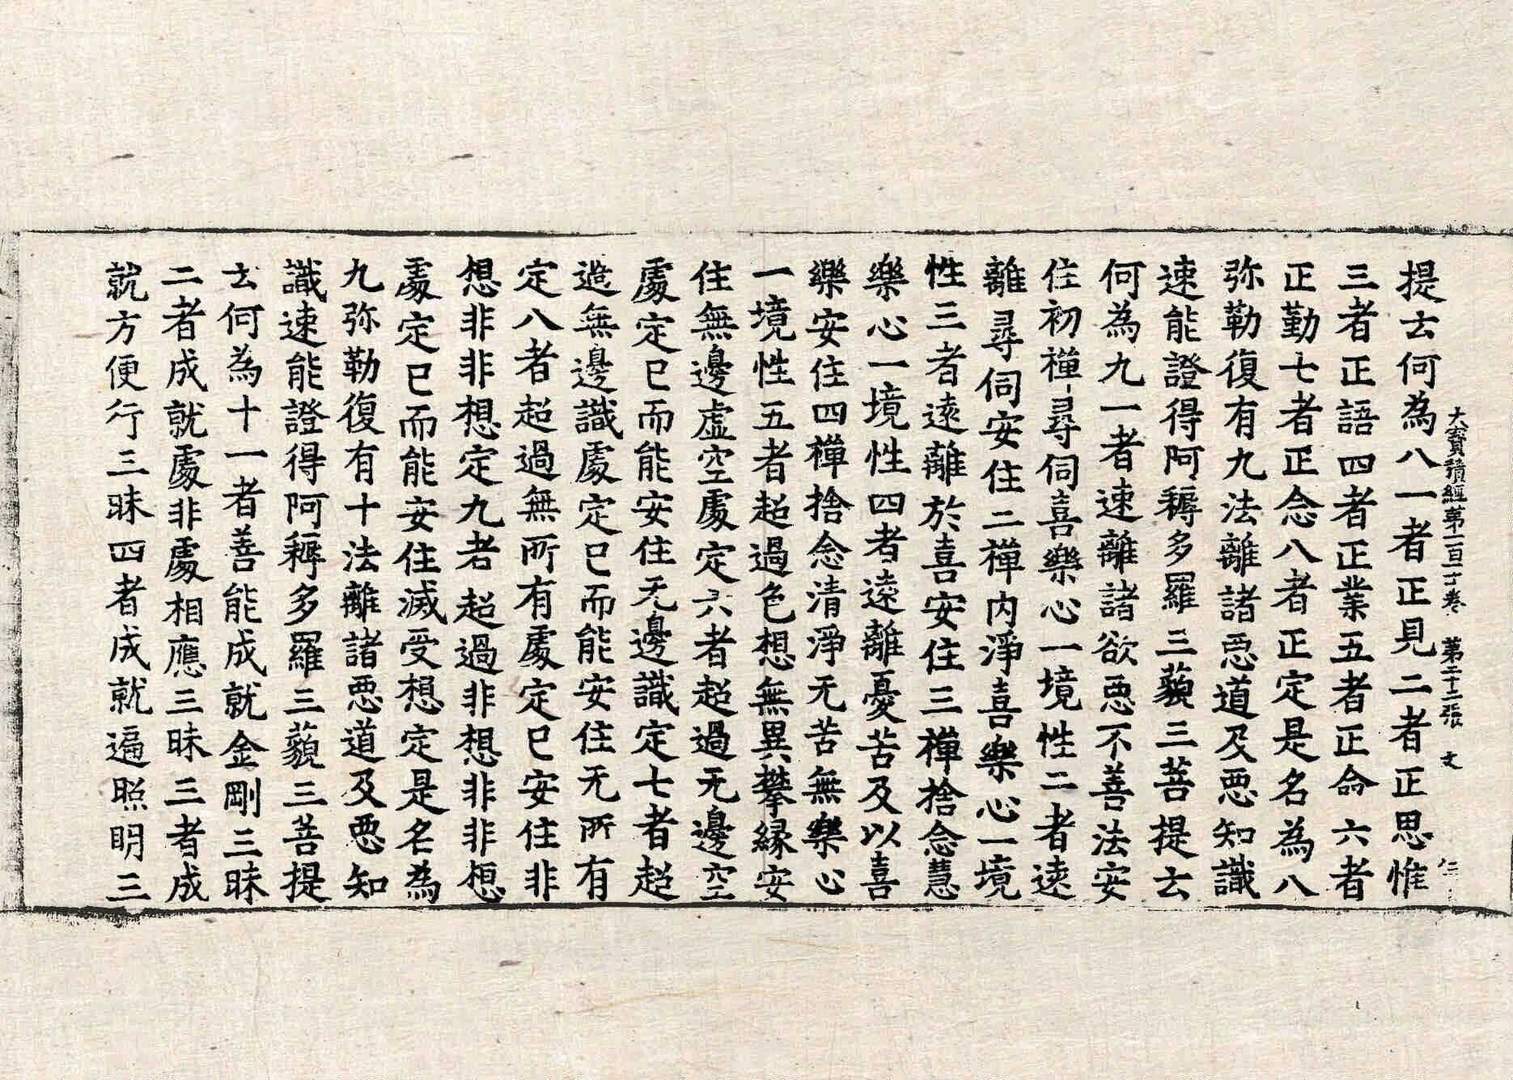 大寳積經第一百一十卷　第二十二張　文
提云何為八一者正見二者正思惟
三者正語四者正業五者正命六者
正勤七者正念八者正定是名為八
弥勒復有九法離諸惡道及惡知識
速能證得阿耨多羅三藐三菩提云
何為九一者速離諸欲惡不善法安
住初禪尋伺喜樂心一境性二者遠
離尋伺安住二禪內淨喜樂心一境
性三者遠離於喜安住三禪捨念慧
樂心一境性四者遠離憂苦及以喜
樂安住四禪捨念清淨无苦無樂心
一境性五者超過色想無異攀緣安
住無邊虛空處定六者超過无邊空
處定已而能安住无邊識定七者超
過無邊識處定已而能安住无所有
定八者超過無所有處定已安住非
想非非想定九者超過非想非非想
處定已而能安住滅受想定是名為
九弥勒復有十法離諸惡道及惡知
識速能證得阿耨多羅三藐三菩提
云何為十一者善能成就金剛三昧
二者成就處非處相應三昧三者成
就方便行三昧四者成就遍照明三